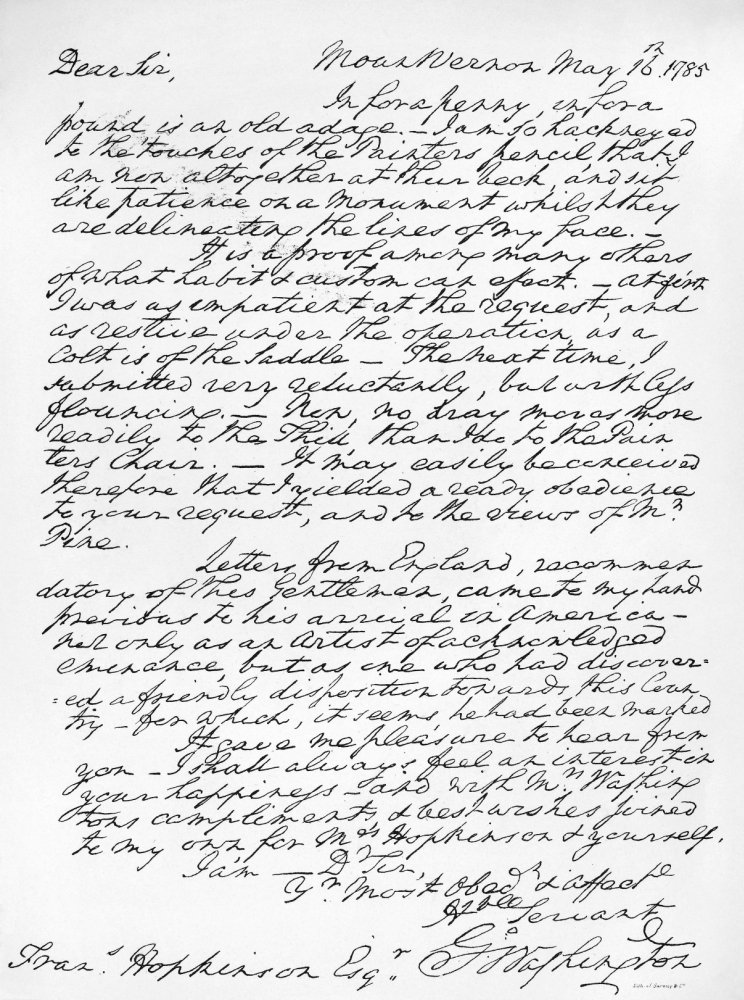 Dear Sir,
Mount Vernon May 16th. 1785
In for a penny, in for a
pound is an old adage. — I am so hackneyed
to the touches of the Painters pencil, that I
am now altogether at their beck, and sit
like patience on a Monument whilst they
are delineating the lines of my face. —
It is a proof among many others
of what habit & custom can effect. — At first
I was as impatient at the request, and
as restive under the operation, as a
Colt is of the Saddle — The next time, I
submitted very reluctantly, but with less
flouncing. — Now, no dray moves more
readily to the Thill, than I do to the Pain
ters Chair. — It may easily be conceived
therefore that I yielded a ready obedience
to your request, and to the views of Mr.
Pine.
Letters from England, recommen
datory of this Gentleman, came to my hand
previous to his arrival in America —
not only as an Artist of acknowledged
eminance, but as one who had discover=
=ed a friendly disposition towards this Coun
try — for which, it seems, he had been marked
It gave me pleasure to hear from
you — I shall always feel an interest in
your happiness — and with Mrs. Washing
tons compliments, & best wishes joined
to my own for Mrs. Hopkinson & yourself,
I am — Dr Sir,
Yr. Most Obedt. & affecte
Hble Servant
Go: Washington
Frans. Hopkinson Esqr.
Lith. of Sarony & Co.